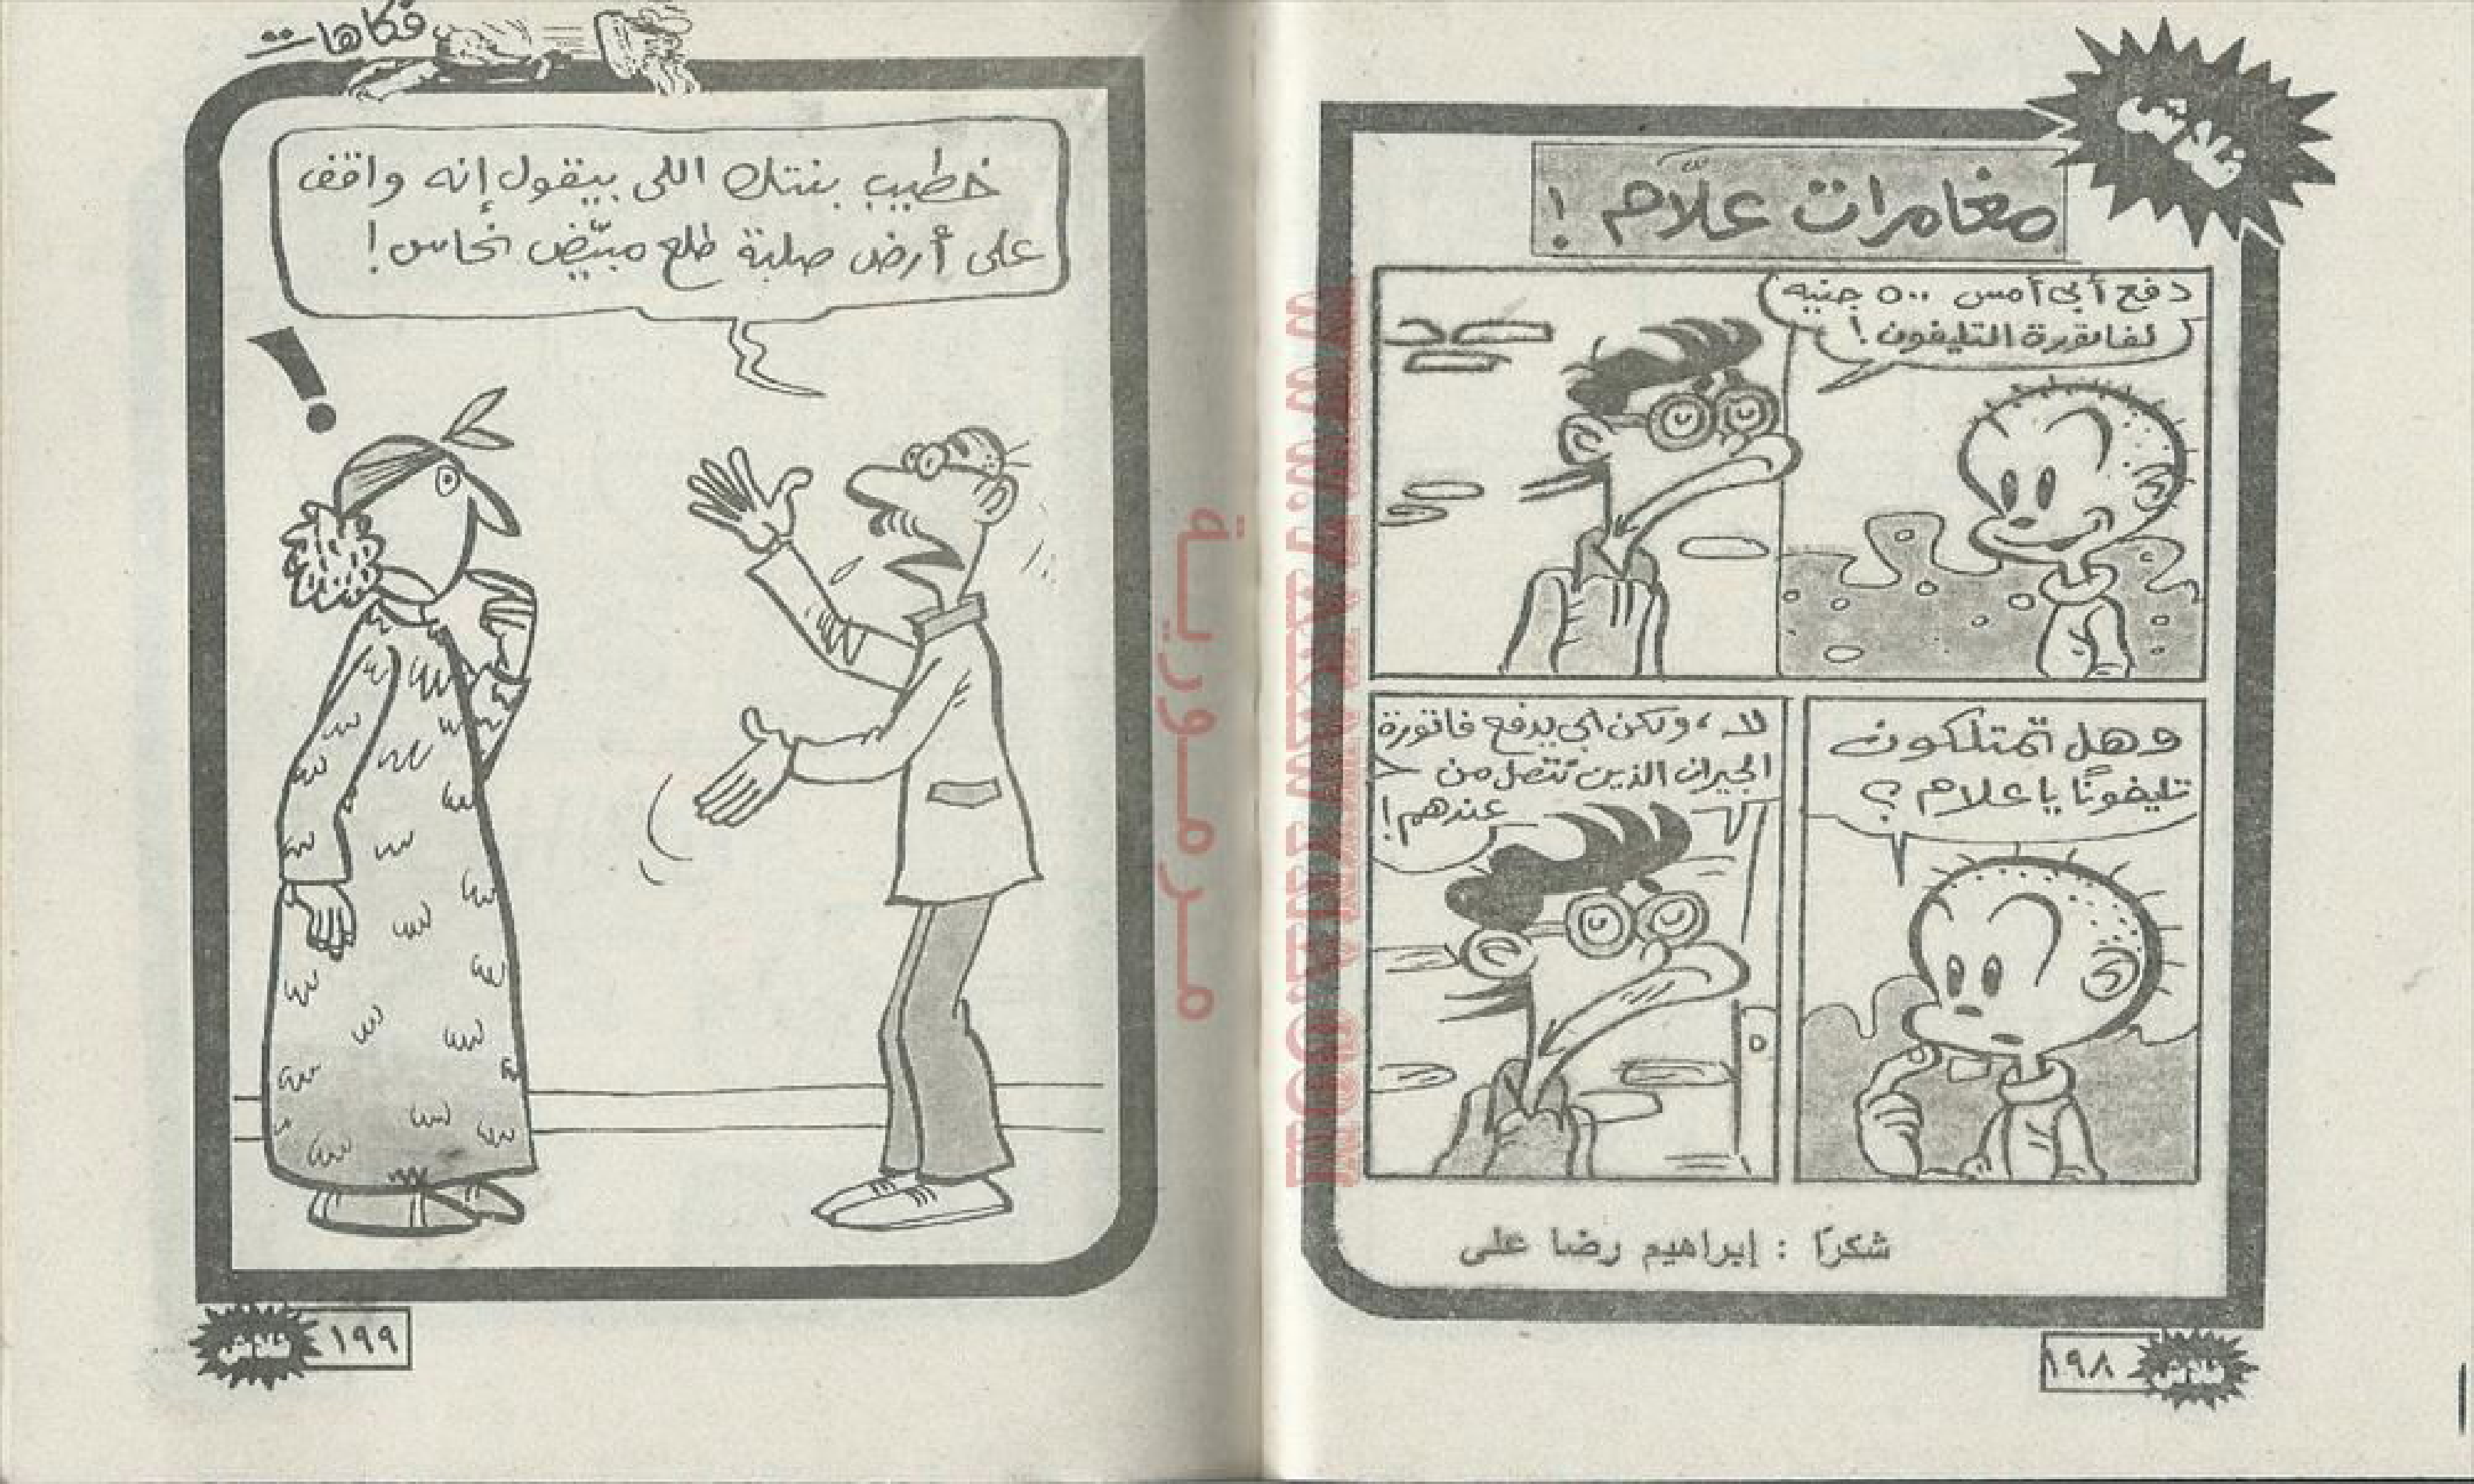 فلاش
مغامرات علاّم !
دفع أبى أمس ٥٠٠ جنيه
لفاتورة التليفون !
وهل تمتلكون
تليفونًا يا علام ؟
لا ، ولكن أبى يدفع فاتورة
الجيران الذين نتصل من
عندهم !
شكرًا : إبراهيم رضا على
١٩٨
فلاش
فكاهات
خطيب بنتك اللى بيقول إنه واقف
على أرض صلبة طلع مبيّض نحاس !
!
١٩٩
فلاش
مرمورية